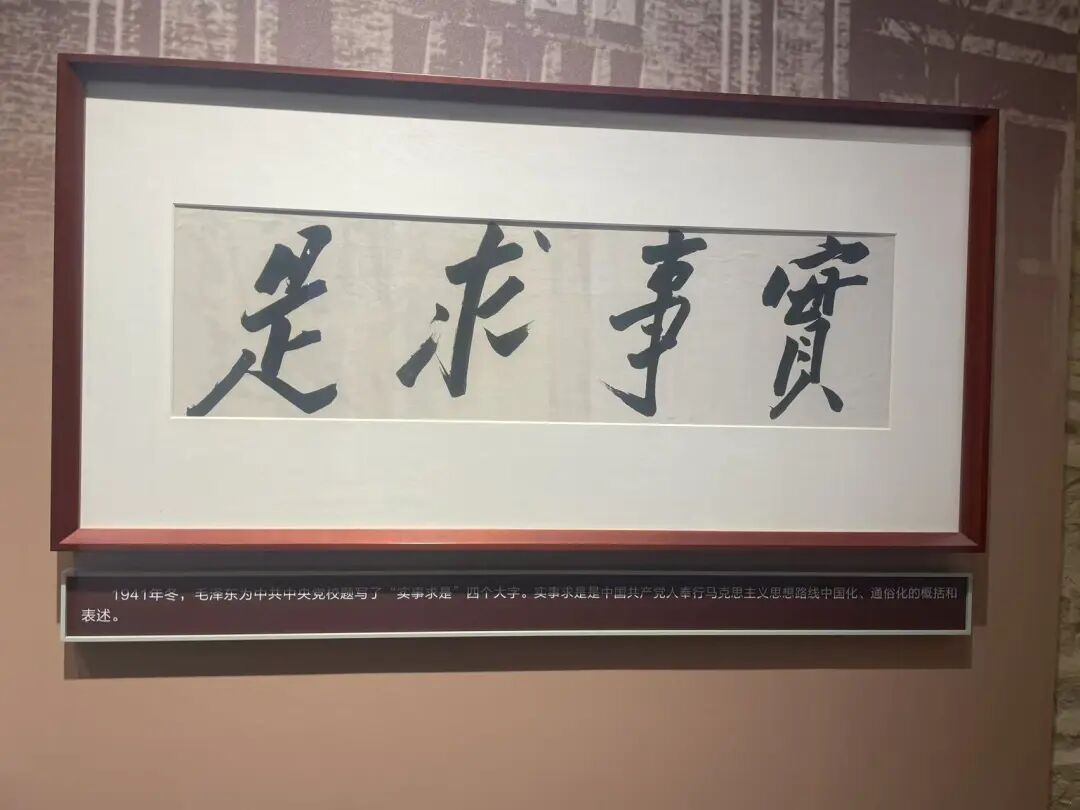 實事求是
1941年冬，毛泽东为中共中央党校题写了“实事求是”四个大字。实事求是是中国共产党人奉行马克思主义思想路线中国化、通俗化的概括和
表述。